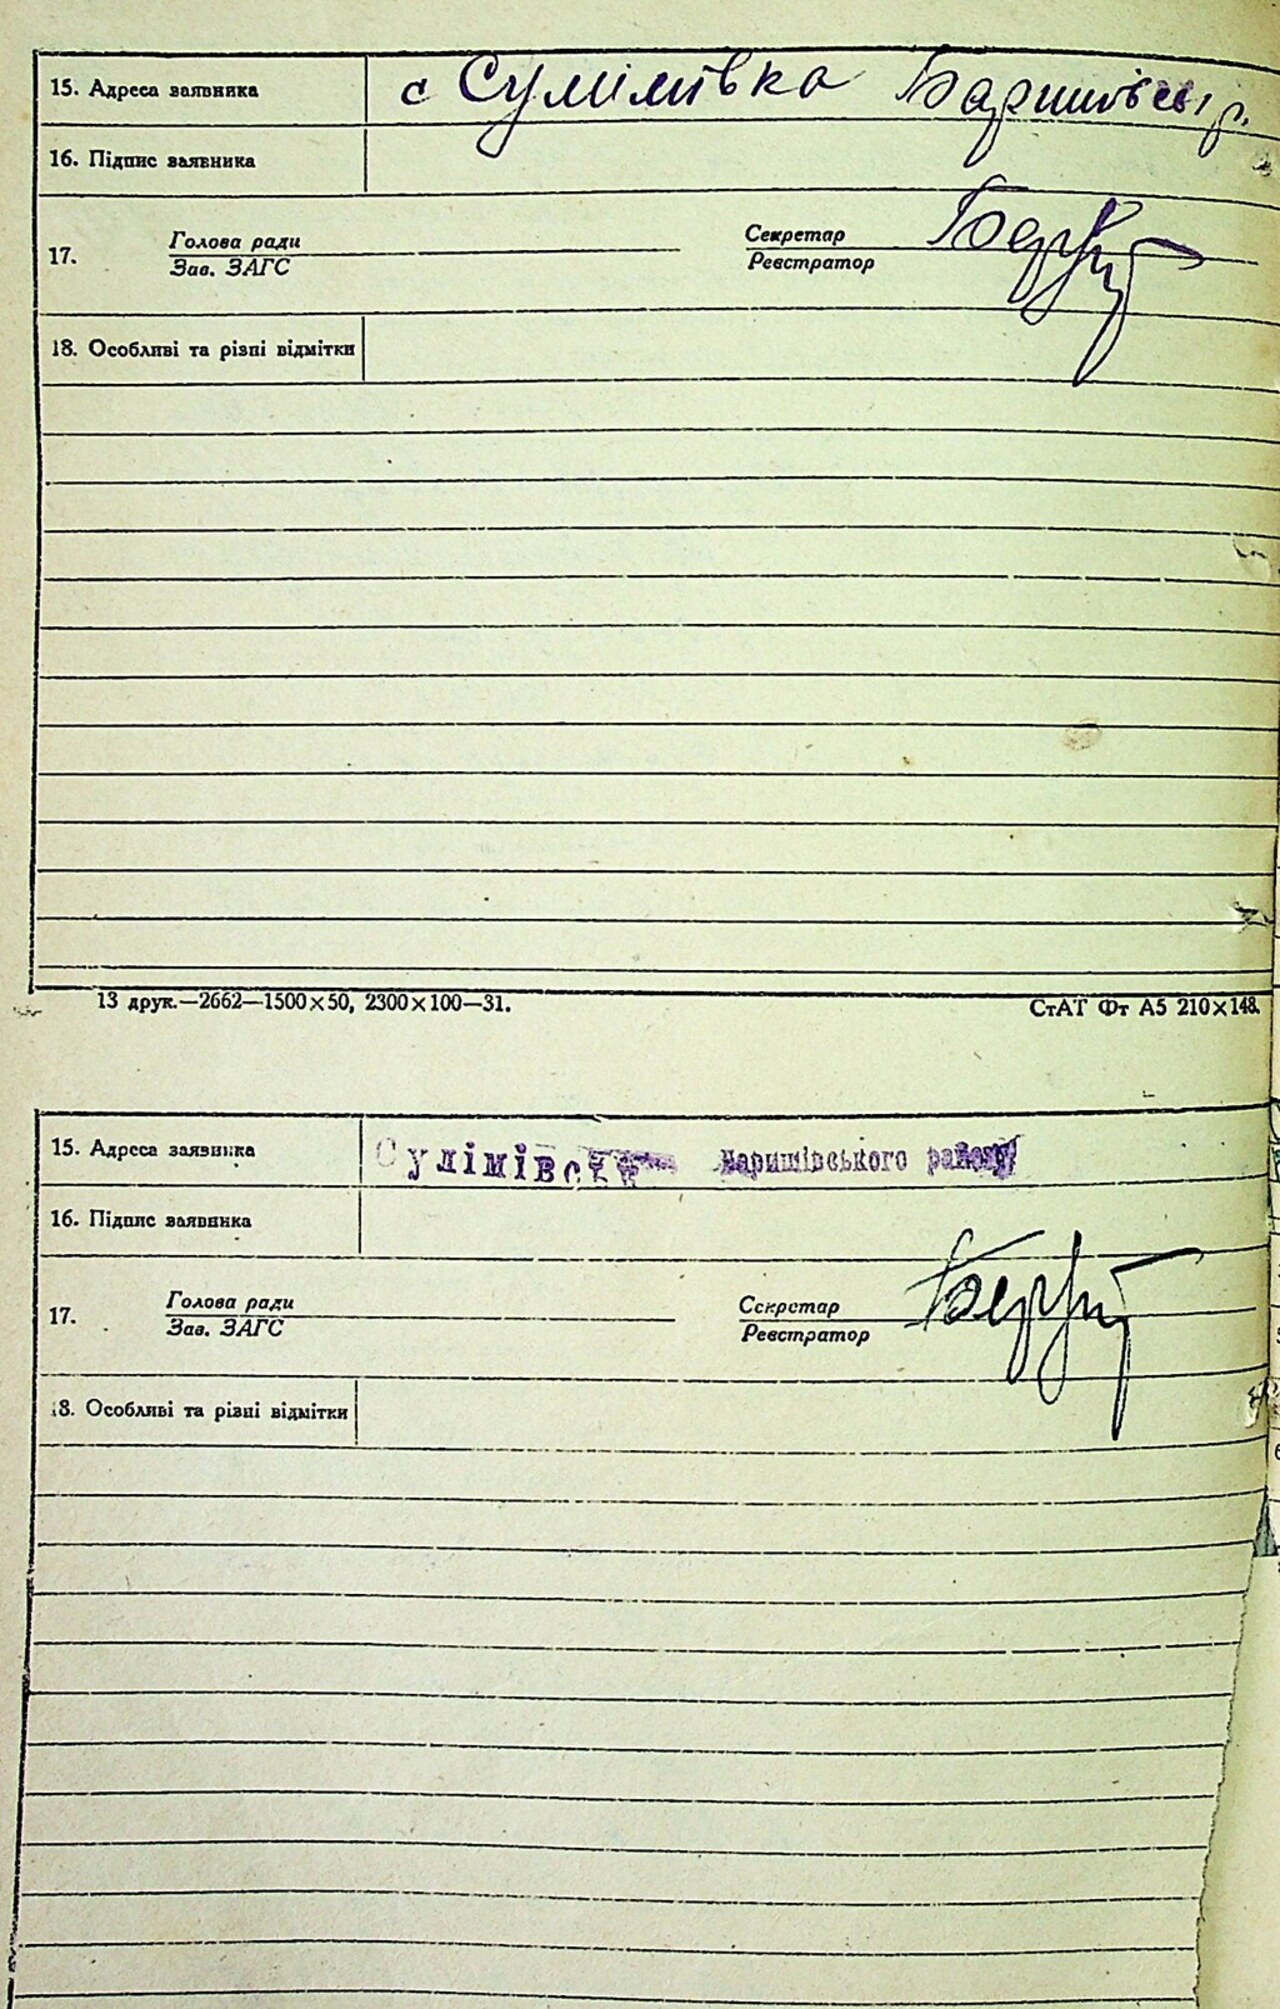 15. Адреса заявника с Сулімівка Баришівськ р.
16. Підпис заявника
17. Голова ради Секретар
Зав. ЗАГС Реєстратор
18. Особливі та різні відмітки
13 друк.—2662—1500×50, 2300×100—31. СтАТ Фт А5 210×148.
15. Адреса заявника Сулімівс Баришівського району
16. Підпис заявника
17. Голова ради Секретар
Зав. ЗАГС Реєстратор
18. Особливі та різні відмітки